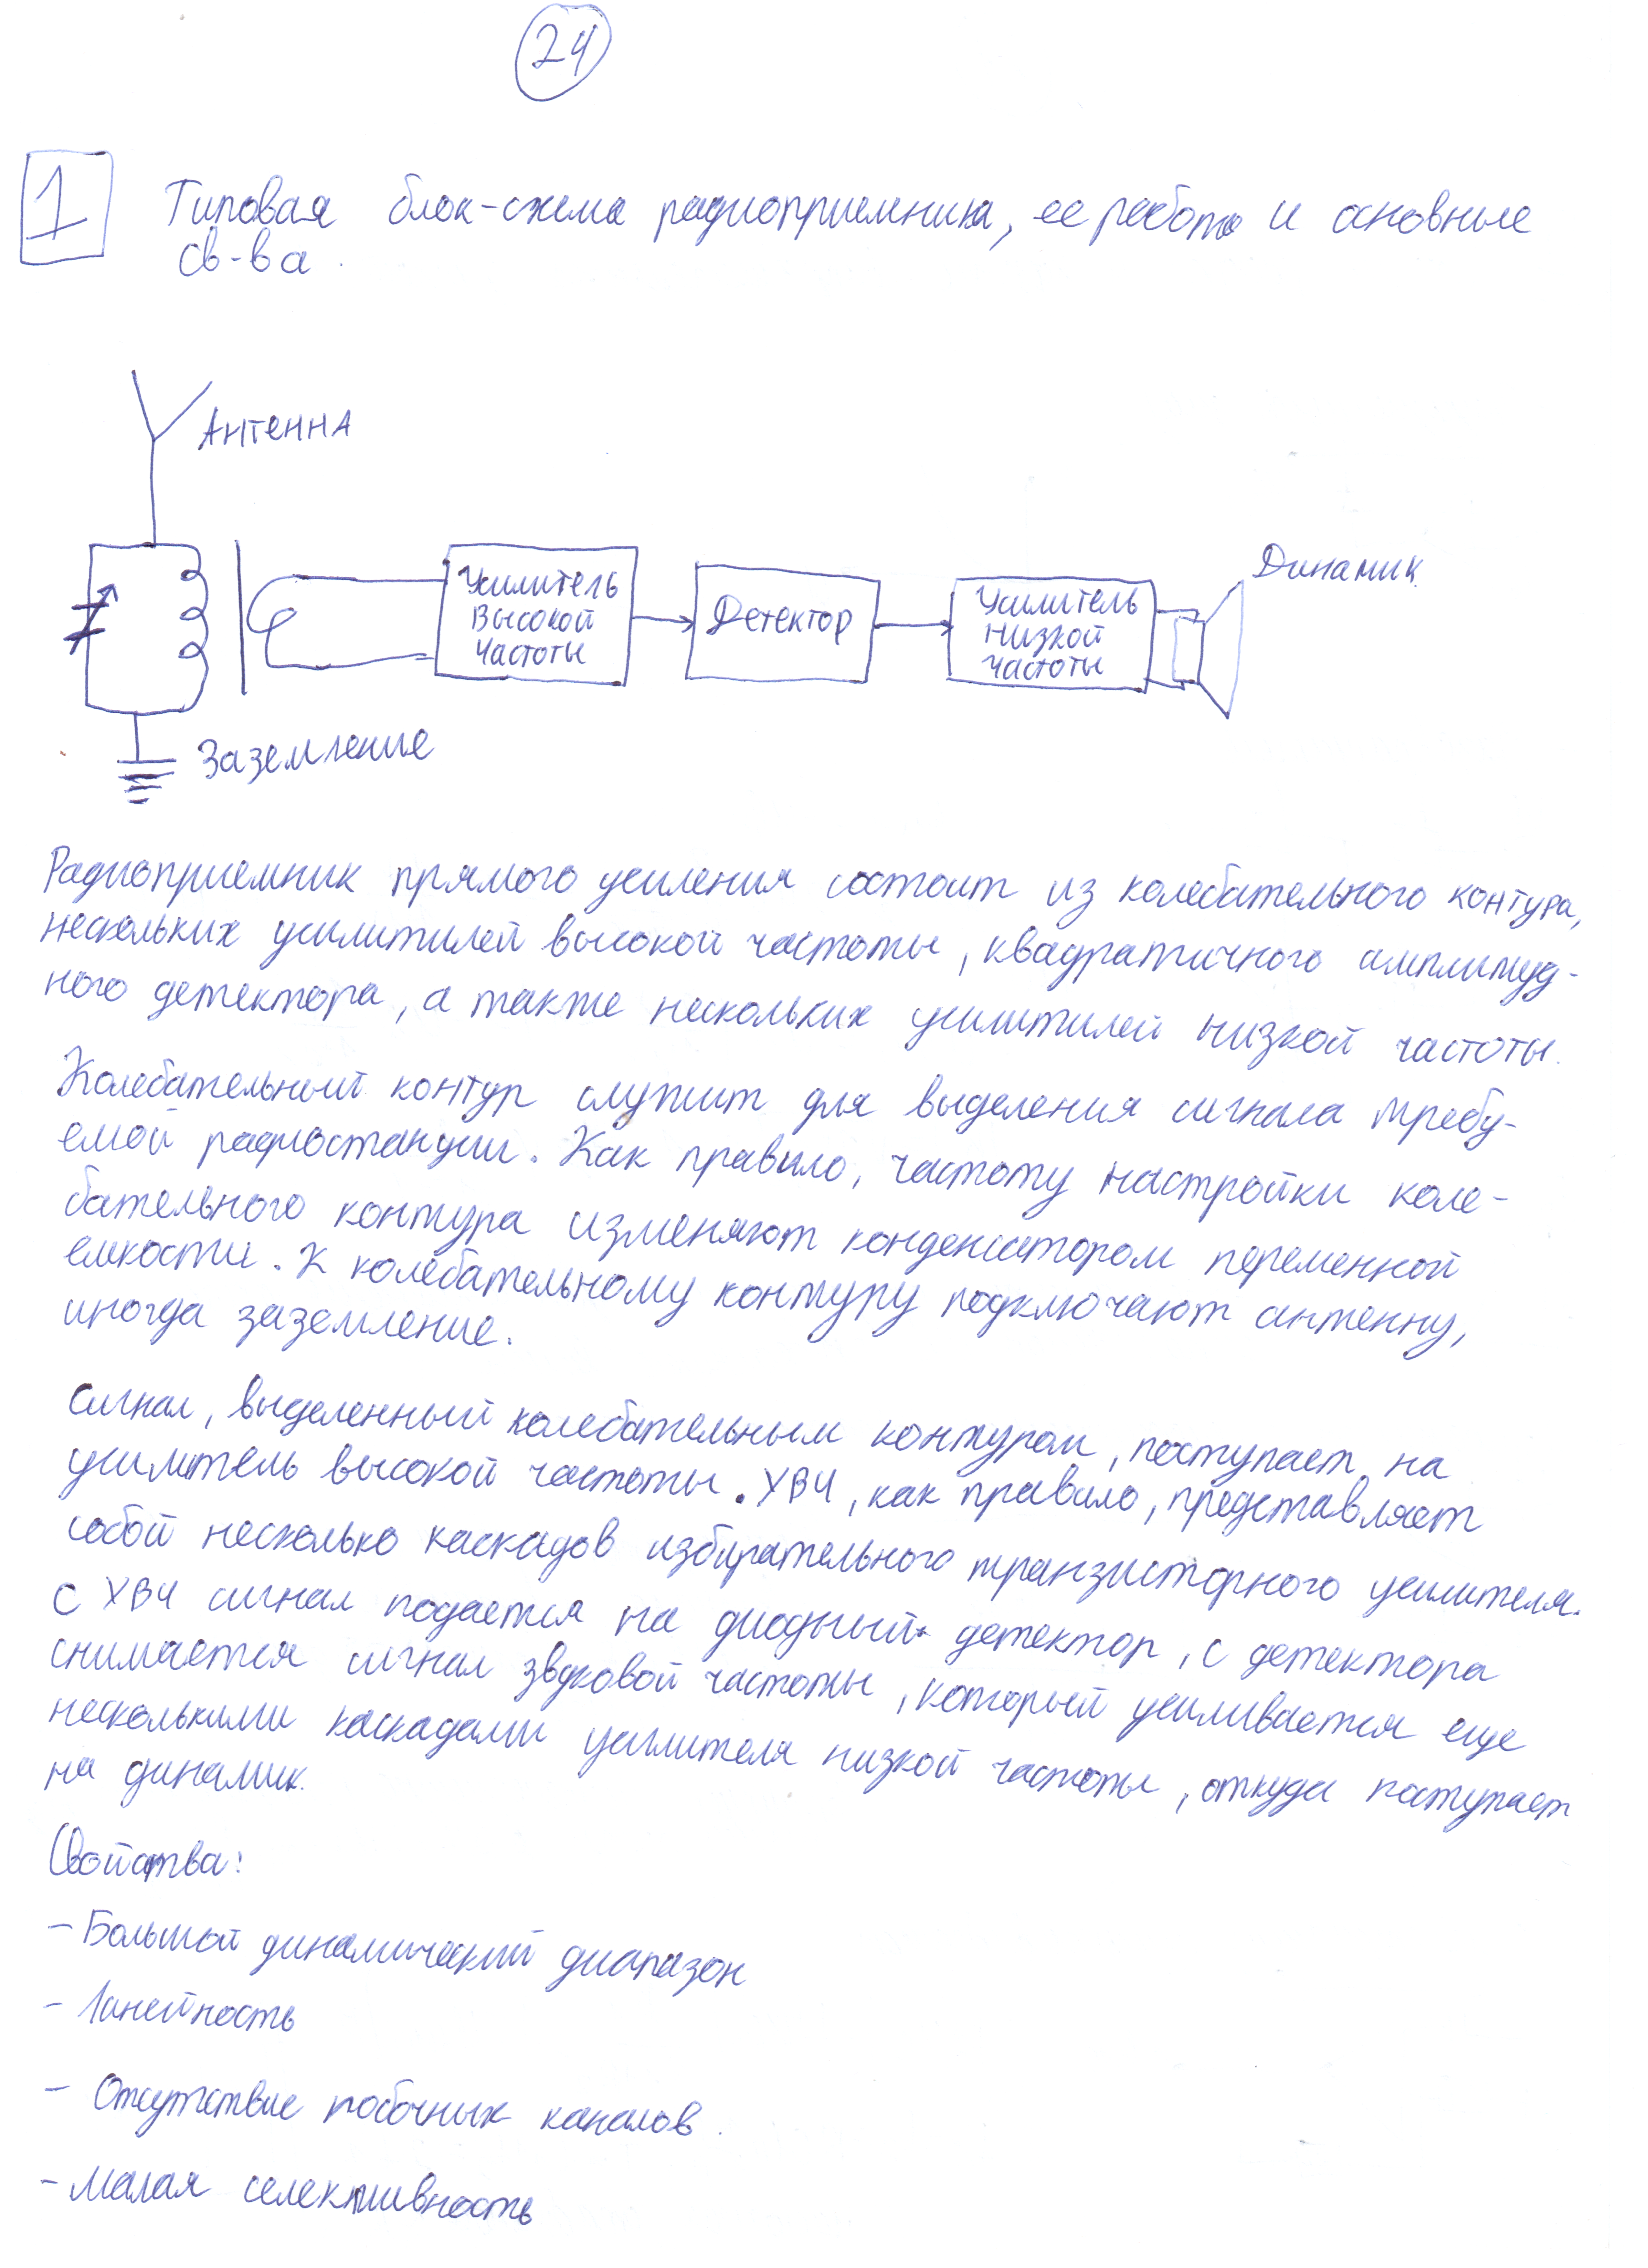 24
1
Типовая блок-схема радиоприемника, ее работа и основные
св-ва.
Антенна
Динамик
Усилитель
высокой
частоты
Детектор
Усилитель
низкой
частоты
Заземление
Радиоприемник прямого усиления состоит из колебательного контура,
нескольких усилитилей высокой частоты, квадратичного амплитуд-
ного детектора, а также нескольких усилитилей низкой частоты.
Колебательный контур служит для выделения сигнала требу-
емой радиостанции. Как правило, частоту настройки коле-
бательного контура изменяют конденсатором переменной
емкости. К колебательному контуру подключают антенну,
иногда заземление.
Сигнал, выделенный колебательным контуром, поступает на
усилитель высокой частоты. УВЧ, как правило, представляет
собой несколько каскадов избирательного транзисторного усилителя.
С УВЧ сигнал подается на диодный детектор, с детектора
снимается сигнал звуковой частоты, который усиливается еще
несколькими каскадами усилителя низкой частоты, откуда поступает
на динамик.
Свойства:
- Большой динамический диапазон
- Линейность
- Отсутствие побочных каналов.
- Малая селективность